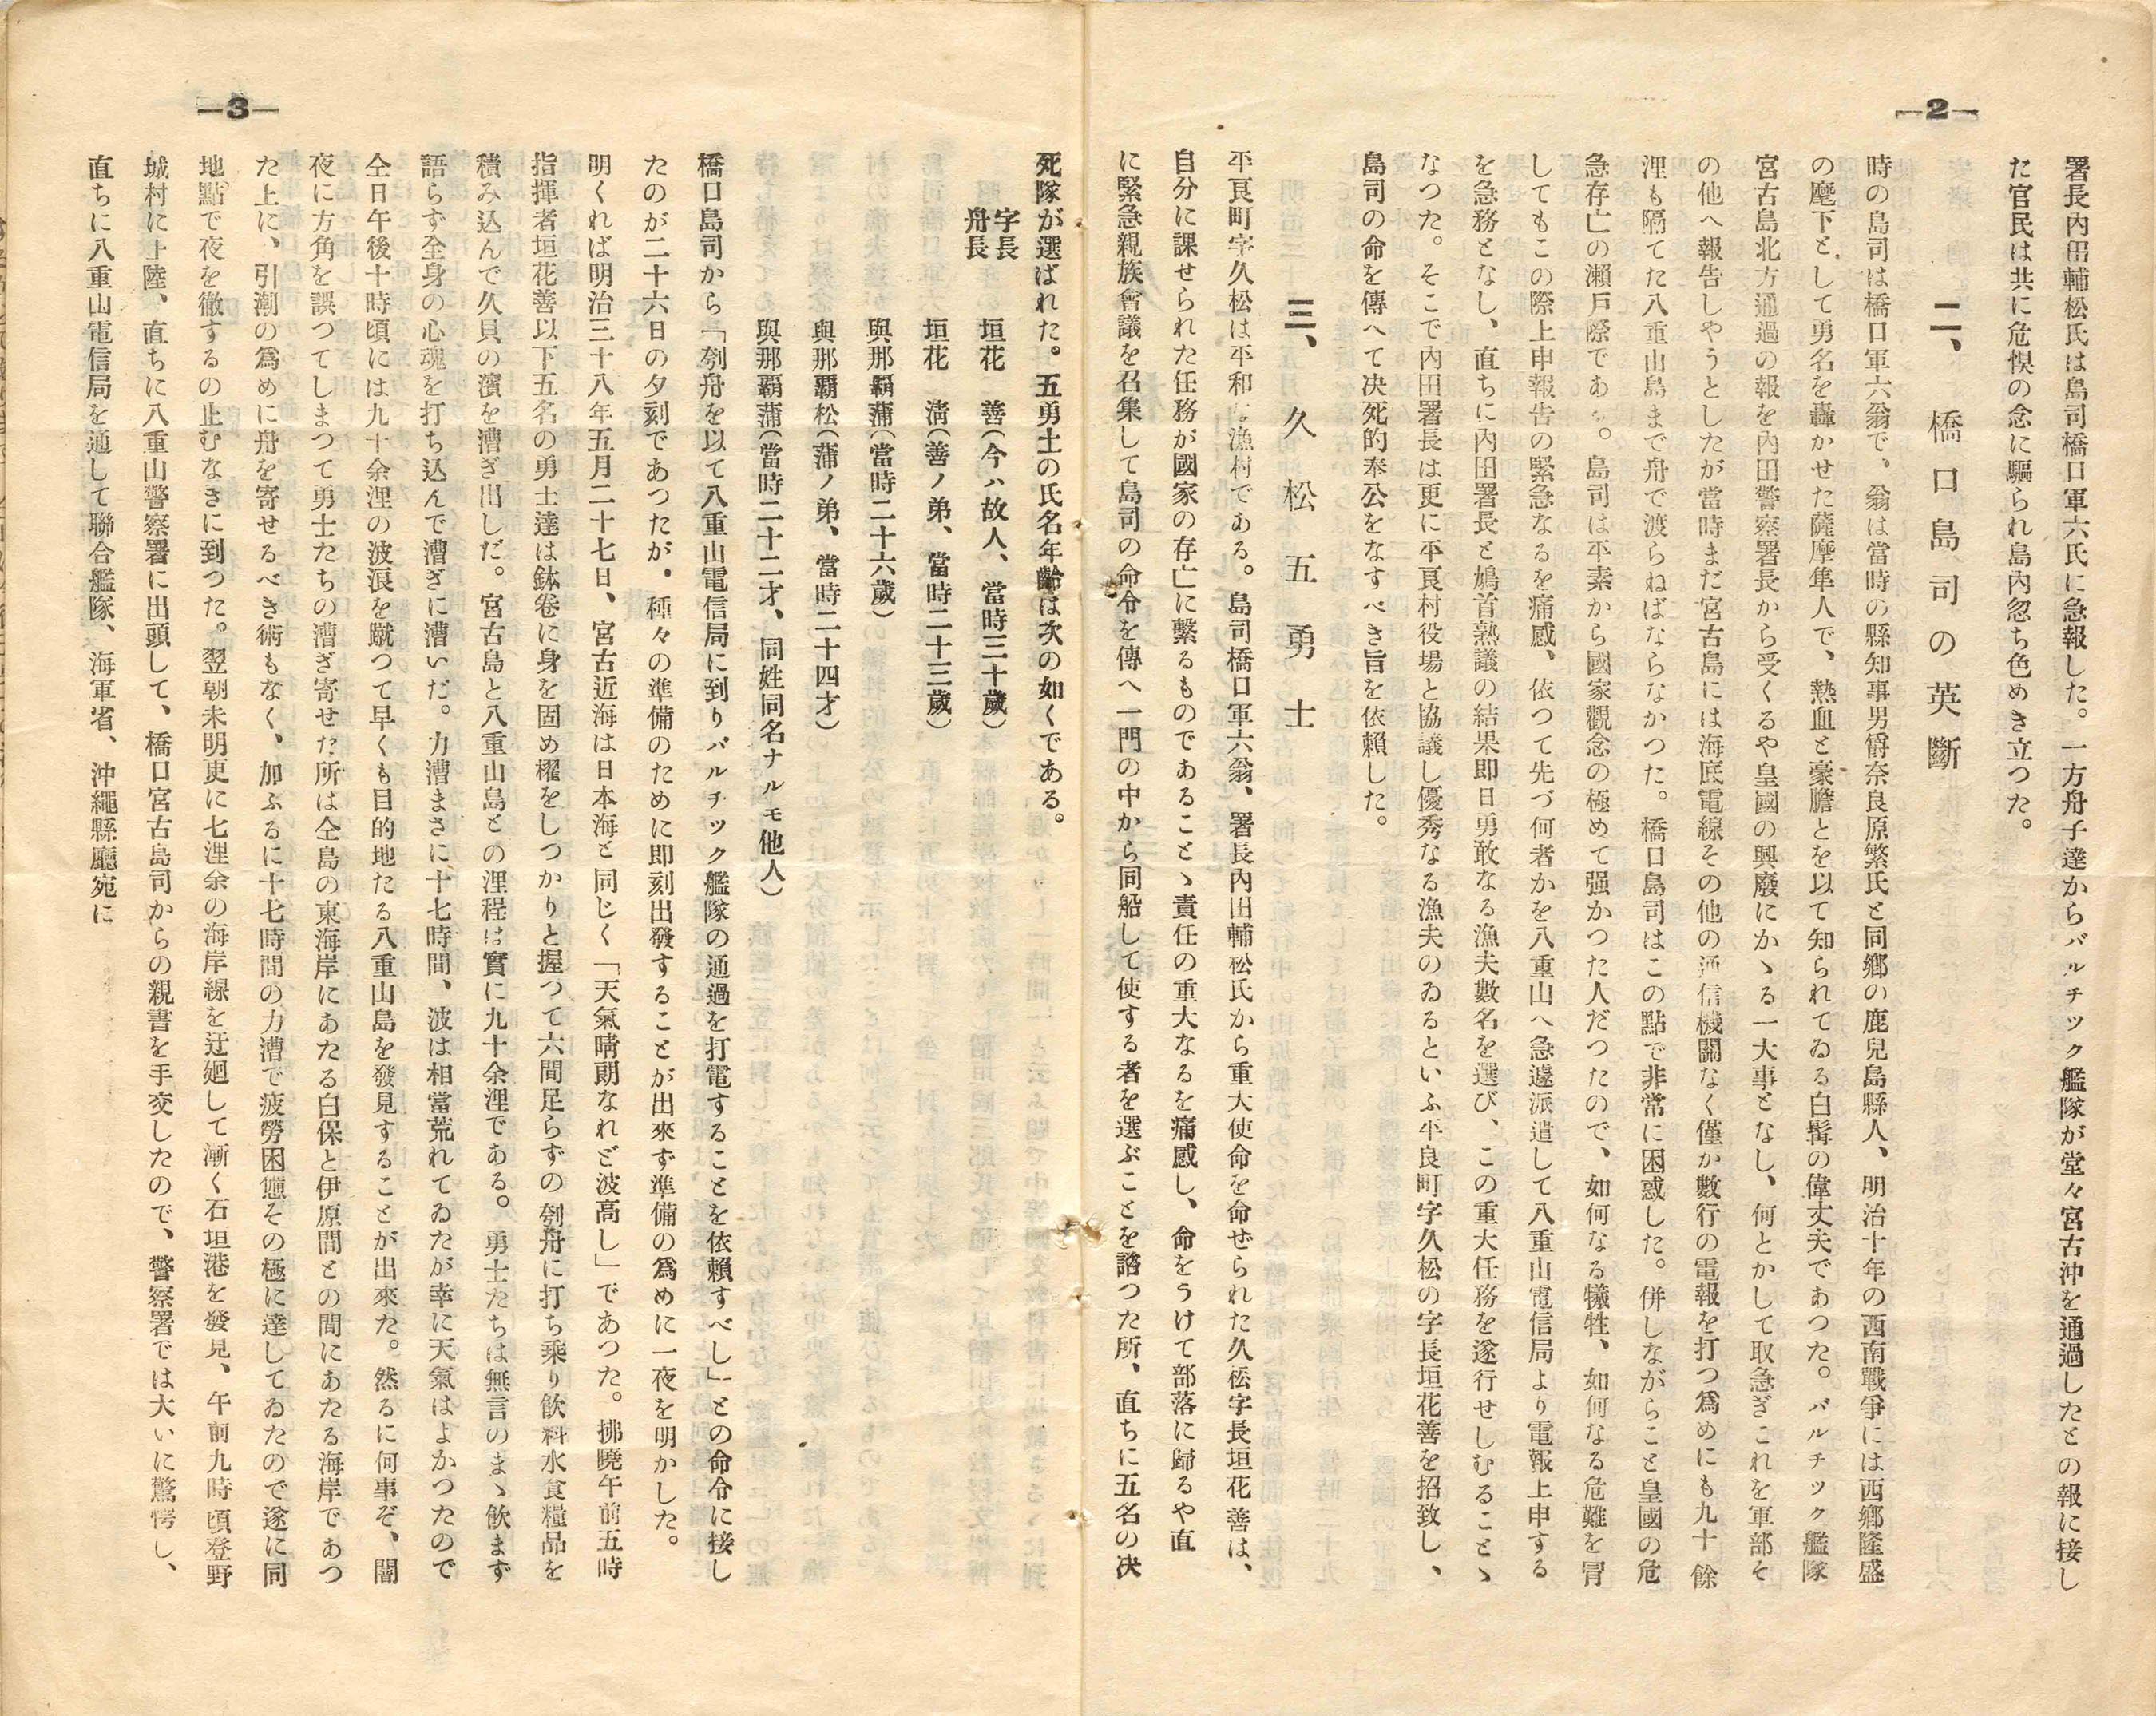 —2—
署長内田輔松氏は島司橋口軍六氏に急報した。一方舟子達からバルチック艦隊が堂々宮古沖を通過したとの報に接し
た官民は共に危惧の念に驅られ島内忽ち色めき立つた。
二、橋口島司の英斷
時の島司は橋口軍六翁で、翁は當時の縣知事男爵奈良原繁氏と同鄕の鹿兒島縣人、明治十年の西南戰爭には西鄕隆盛
の麾下として勇名を轟かせた薩摩隼人で、熱血と豪膽とを以て知られてゐる白髯の偉丈夫であつた。バルチック艦隊
宮古島北方通過の報を内田警察署長から受くるや皇國の興廢にかゝる一大事となし、何とかして取急ぎこれを軍部そ
の他へ報告しやうとしたが當時まだ宮古島には海底電線その他の通信機關なく僅か數行の電報を打つ爲めにも九十餘
浬も隔てた八重山島まで舟で渡らねばならなかつた。橋口島司はこの點で非常に困惑した。併しながらこと皇國の危
急存亡の瀨戸際である。島司は平素から國家觀念の極めて强かつた人だつたので、如何なる犧牲、如何なる危難を冒
してもこの際上申報告の緊急なるを痛感、依つて先づ何者かを八重山へ急遽派遣して八重山電信局より電報上申する
を急務となし、直ちに内田署長と鳩首熟議の結果卽日勇敢なる漁夫數名を選び、この重大任務を遂行せしむることゝ
なつた。そこで内田署長は更に平良村役場と協議し優秀なる漁夫のゐるといふ平良町字久松の字長垣花善を招致し、
島司の命を傳へて決死的奉公をなすべき旨を依賴した。
三、久松五勇士
平良町字久松は平和な漁村である。島司橋口軍六翁、署長内田輔松氏から重大使命を命ぜられた久松字長垣花善は、
自分に課せられた任務が國家の存亡に繫るものであることゝ責任の重大なるを痛感し、命をうけて部落に歸るや直
に緊急親族會議を召集して島司の命令を傳へ一門の中から同船して使する者を選ぶことを諮つた所、直ちに五名の決
—3—
死隊が選ばれた。五勇士の氏名年齡は次の如くである。
字長
舟長　垣花　善(今ハ故人、當時三十歲)
垣花　淸(善ノ弟、當時二十三歲)
與那覇蒲(當時二十六歲)
與那覇松(蒲ノ弟、當時二十四才)
與那覇蒲(當時二十二才、同姓同名ナルモ他人)
橋口島司から「刳舟を以て八重山電信局に到りバルチック艦隊の通過を打電することを依賴すべし」との命令に接し
たのが二十六日の夕刻であつたが、種々の準備のために卽刻出發することが出來ず準備の爲めに一夜を明かした。
明くれば明治三十八年五月二十七日、宮古近海は日本海と同じく「天氣晴朗なれど波高し」であつた。拂曉午前五時
指揮者垣花善以下五名の勇士達は鉢卷に身を固め櫂をしつかりと握つて六間足らずの刳舟に打ち乘り飮料水食糧品を
積み込んで久貝の濱を漕ぎ出しだ。宮古島と八重山島との浬程は實に九十余浬である。勇士たちは無言のまゝ飮まず
語らず全身の心魂を打ち込んで漕ぎに漕いだ。力漕まさに十七時間、波は相當荒れてゐたが幸に天氣はよかつたので
仝日午後十時頃には九十余浬の波浪を蹴つて早くも目的地たる八重山島を發見することが出來た。然るに何事ぞ、闇
夜に方角を誤つてしまつて勇士たちの漕ぎ寄せた所は仝島の東海岸にあたる白保と伊原間との間にあたる海岸であつ
た上に、引潮の爲めに舟を寄せるべき術もなく、加ふるに十七時間の力漕で疲勞困憊その極に達してゐたので遂に同
地點で夜を徹するの止むなきに到つた。翌朝未明更に七浬余の海岸線を迂廻して漸く石垣港を發見、午前九時頃登野
城村に上陸、直ちに八重山警察署に出頭して、橋口宮古島司からの親書を手交したので、警察署では大いに驚愕し、
直ちに八重山電信局を通して聯合艦隊、海軍省、沖繩縣廳宛に